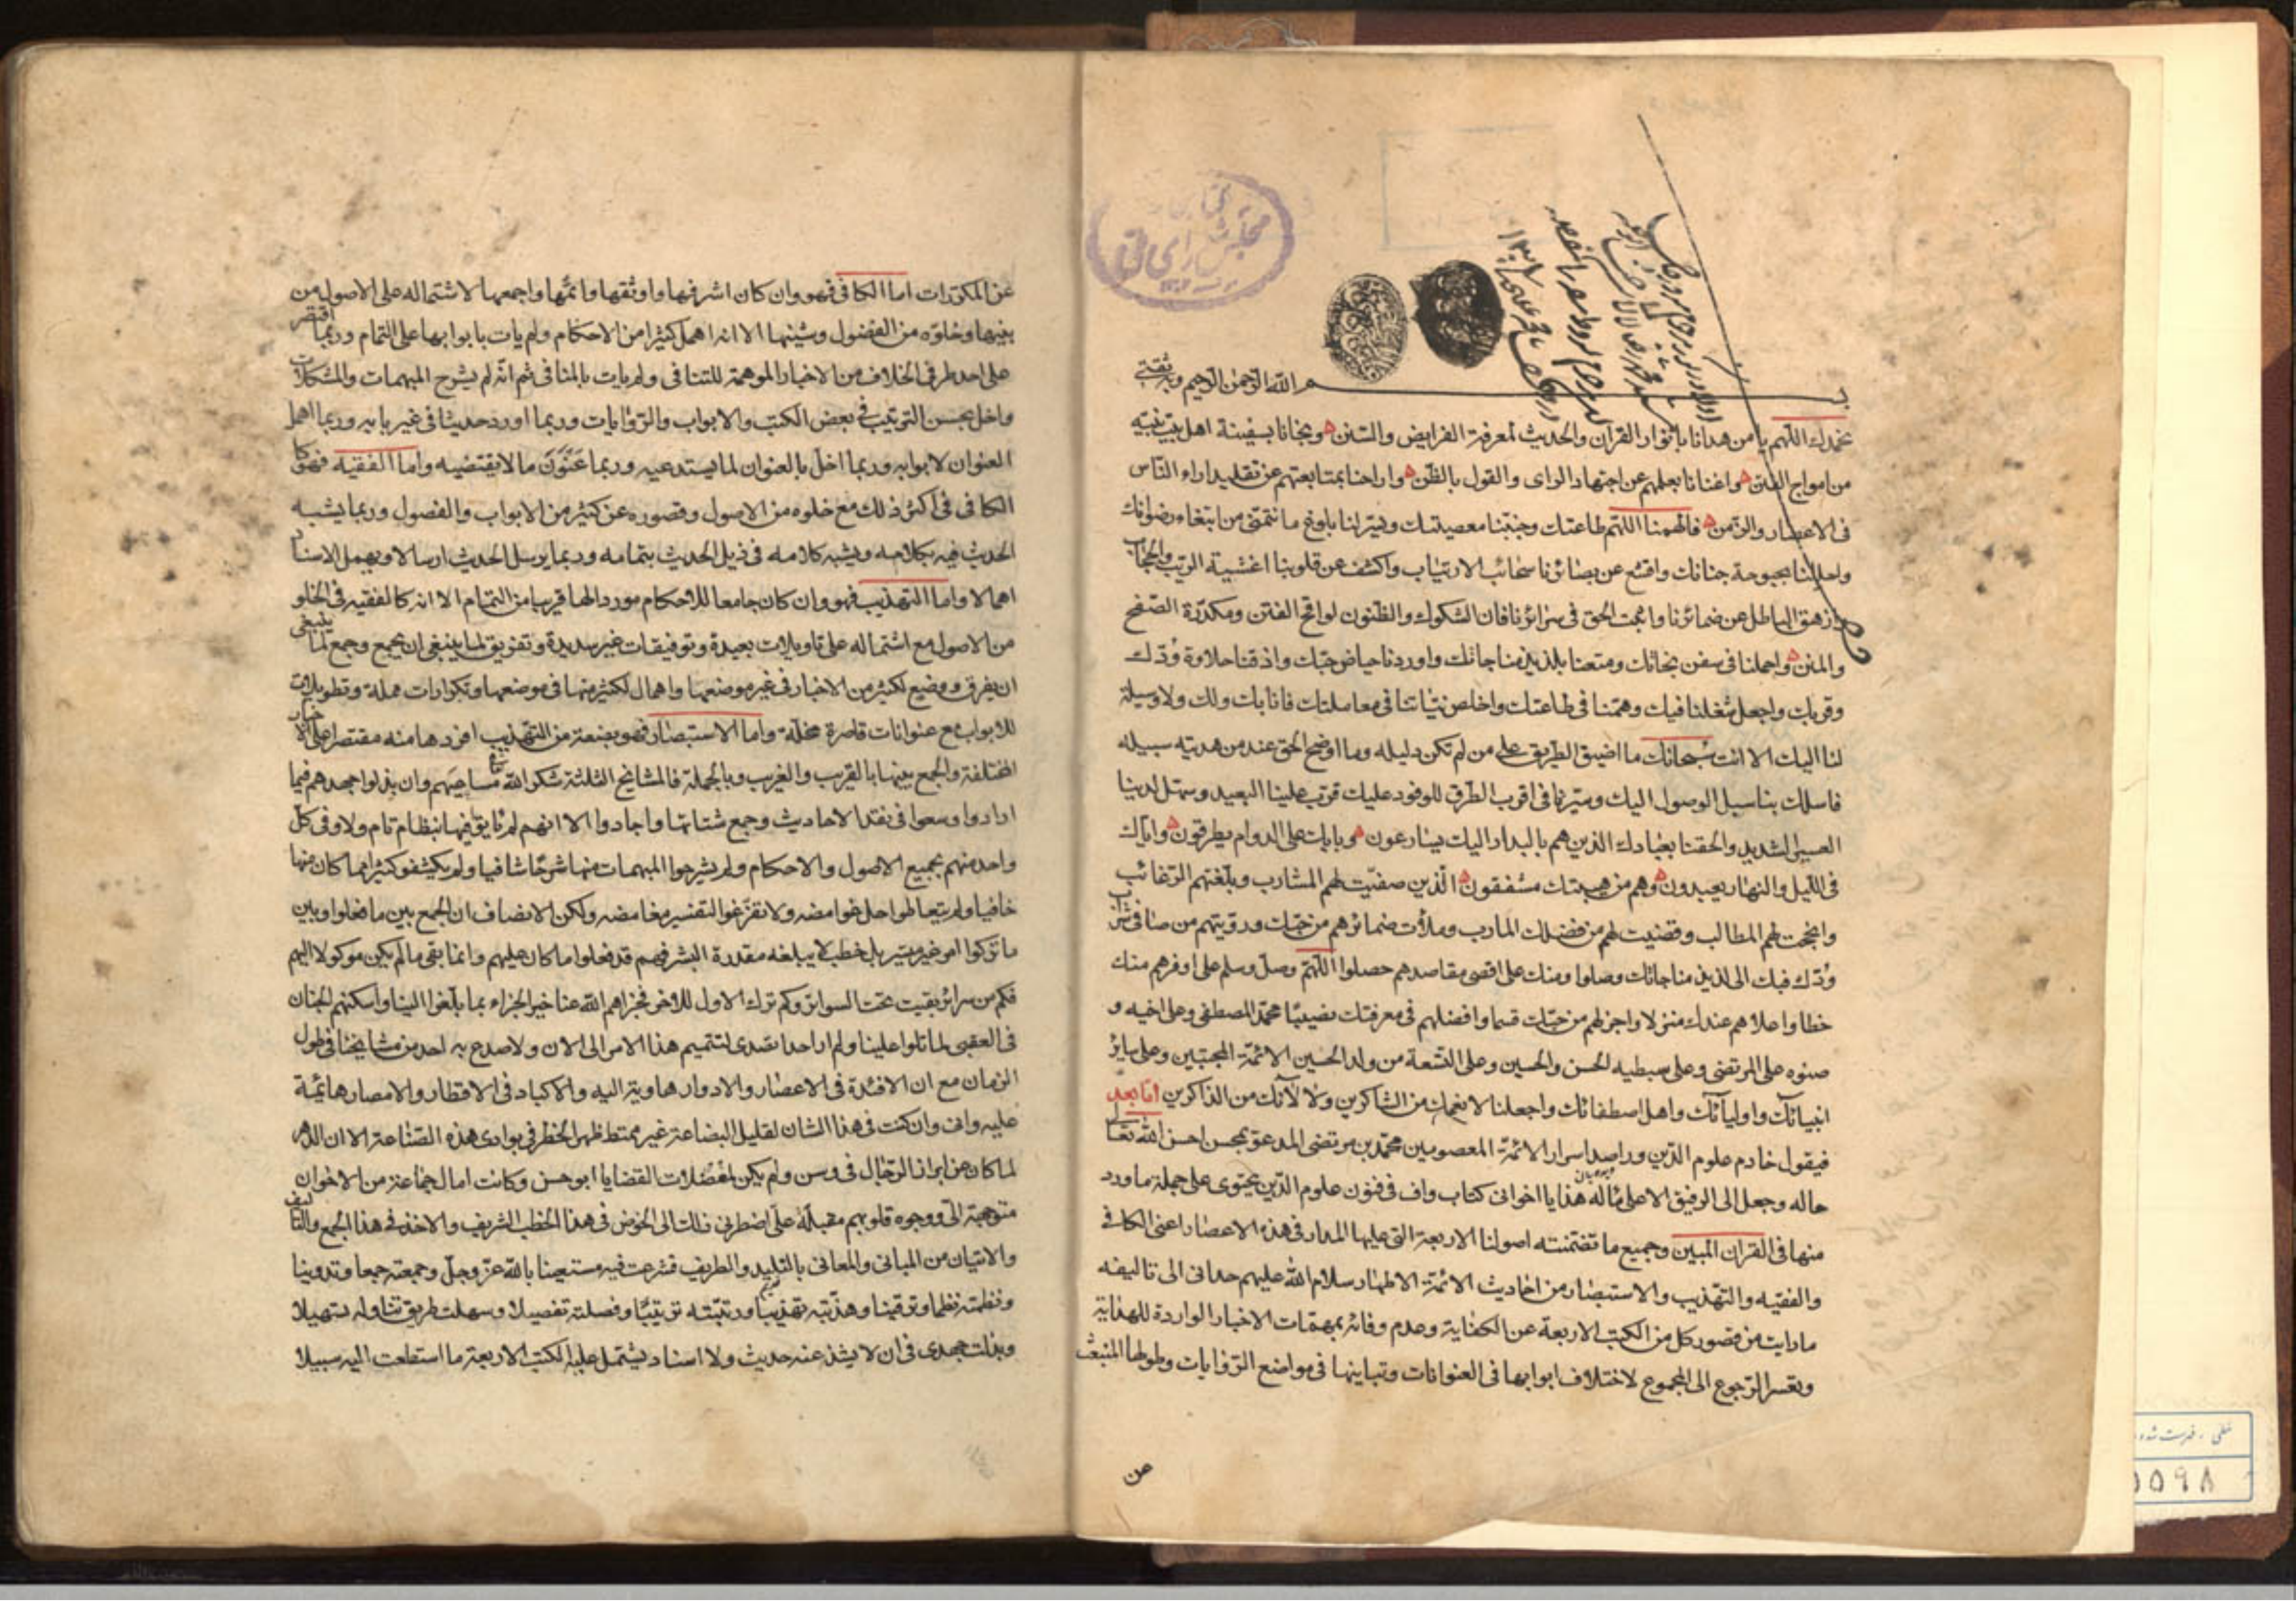 بسم الله الرحمن الرحيم وبه ثقتي
نحمدك اللهم يا من هدانا بانوار القرآن والحديث لمعرفة الفرايض والسنن ونجانا بسفينة اهل بيت نبيه
من امواج الفتن واغنانا بعلمهم عن اجتهاد الراى والقول بالظن واراحنا بمتابعتهم عن تقليد اراء الناس
فى الاعصار والزمن فالهمنا اللهم طاعتك وجنبنا معصيتك ويسر لنا بلوغ ما نتمنى من ابتغاء رضوانك
واحللنا بحبوحة جنانك واقشع عن بصائرنا سحائب الارتياب واكشف عن قلوبنا اغشية الريب والحجاب
وازهق الباطل عن ضمائرنا واثبت الحق فى سرائرنا فان الشكوك والظنون لواقح الفتن ومكدرة الصفح
والمنن واحملنا فى سفن نجاتك ومتعنا بلذيذ مناجاتك واوردنا حياض حبك واذقنا حلاوة ودك
وقربك واجعل شغلنا فيك وهمتنا فى طاعتك واخلص نياتنا فى معاملتك فانا بك ولك ولا وسيلة
لنا اليك الا انت سبحانك ما اضيق الطريق على من لم تكن دليله وما اوضح الحق عند من هديته سبيله
فاسلك بنا سبل الوصول اليك وسيرنا فى اقرب الطرق للوفود عليك قرب علينا البعيد وسهل لدينا
العسير الشديد والحقنا بعبادك الذين هم بالبدار اليك يسارعون وبابك على الدوام يطرقون واياك
فى الليل والنهار يعبدون وهم من هيبتك مشفقون الذين صفيت لهم المشارب وبلغتهم الرغائب
وانجحت لهم المطالب وقضيت لهم من فضلك المارب وملأت ضمائرهم من حبك ورويتهم من صافى شراب
ودك فبك الى لذيذ مناجاتك وصلوا ومنك على اقصى مقاصدهم حصلوا اللهم وصل وسلم على اوفرهم منك
حظا واعلاهم عندك منزلا واجزلهم من حبك قسما وافضلهم فى معرفتك نصيبا محمد المصطفى وعلى اخيه و
صنوه على المرتضى وعلى سبطيه الحسن والحسين وعلى التسعة من ولد الحسين الائمة المجتبين وعلى ساير
انبيائك واوليائك واهل اصطفائك واجعلنا لانعمك من الشاكرين ولآلائك من الذاكرين اما بعد
فيقول خادم علوم الدين وراصد اسرار الائمة المعصومين محمد بن مرتضى المدعو بمحسن احسن الله تعالى
حاله وجعل الى الرفيق الاعلى مآله هذا يا اخوانى كتاب واف فى فنون علوم الدين يحتوى على جملة ما ورد
منها فى القران المبين وجميع ما تضمنته اصولنا الاربعة التى عليها المدار فى هذه الاعصار اعنى الكافى
والفقيه والتهذيب والاستبصار من احاديث الائمة الاطهار سلام الله عليهم حدانى الى تاليفه
ما رايت من قصور كل من الكتب الاربعة عن الكفاية وعدم وفائه بمهمات الاخبار الواردة للهداية
وتعسر الرجوع الى المجموع لاختلاف ابوابها فى العنوانات وتباينها فى مواضع الروايات وطولها المنبعث
عن المكررات اما الكافى فهو وان كان اشرفها واوثقها واتمها واجمعها لاشتماله على الاصول من
بينها وخلوه من الفضول وشينها الا انه اهمل كثيرا من الاحكام ولم يات بابوابها على التمام وربما اقتصر
على احد طرفى الخلاف من الاخبار الموهمة للتنافى ولم يات بالمنافى ثم انه لم يشرح المبهمات والمشكلات
واخل بحسن الترتيب فى بعض الكتب والابواب والروايات وربما اورد حديثا فى غير بابه وربما اهمل
العنوان لابوابه وربما اخل بالعنوان لما يستدعيه وربما عنون ما لا يقتضيه واما الفقيه فهو كا
الكافى فى اكثر ذلك مع خلوه من الاصول وقصوره عن كثير من الابواب والفصول وربما يشبه
الحديث فيه بكلامه ويشبه كلامه فى ذيل الحديث بتمامه وربما يرسل الحديث ارسالا ويهمل الاسناد
اهمالا واما التهذيب فهو وان كان جامعا للاحكام موردا لها قريبا من التمام الا انه كالفقيه فى الخلو
من الاصول مع اشتماله على تاويلات بعيدة وتوفيقات غير سديدة وتفريق لما ينبغى ان يجمع وجمع لما ينبغى
ان يفرق ووضع لكثير من الاخبار فى غير موضعها واهمال لكثير منها فى موضعها وتكرارات مملة وتطويلات
للابواب مع عنوانات قاصرة مخلة واما الاستبصار فهو بضعة من التهذيب افردها منه مقتصرا على الاخبار
المختلفة والجمع بينها بالقريب والغريب وبالجملة فالمشايخ الثلثة شكر الله مساعيهم وان بذلوا جهدهم فيما
ارادوا وسعوا فى نقد الاحاديث وجمع شتاتها واجادوا الا انهم لم ياتوا فيها بنظام تام ولا وفى كل
واحد منهم بجميع الاصول والاحكام ولم يشرحوا المبهمات منها شرحا شافيا ولم يكشفو كثيرا مما كان منها
خافيا ولم يتعاطوا حل غوامضه ولا تفرغوا لتفسير مغامضه ولكن الانصاف ان الجمع بين ما فعلوا وبين
ما تركوا امر غير ميسر بل خطب لا يبلغه مقدرة البشر فهم قد فعلوا ما كان عليهم وانما بقى ما لم يكن موكولا اليهم
فكم من سرائر بقيت تحت السواتر وكم ترك الاول للاخر فجزاهم الله عنا خير الجزاء بما بلغوا الينا واسكنهم الجنان
فى العقبى لما تلوا علينا ولم ار احدا تصدى لتتميم هذا الامر الى الان ولا صدع به احد من مشايخنا فى طول
الزمان مع ان الافئدة فى الاعصار والادوار هاوية اليه والاكباد فى الاقطار والامصار هائمة
عليه وانى وان كنت فى هذا الشان لقليل البضاعة غير ممتط ظهر الخطر فى بوادى هذه الصناعة الا ان الدهر
لما كان عن ابراز الرجال فى وسن ولم يكن لمعضلات القضايا ابو حسن وكانت امال جماعة من الاخوان
متوجهة الى ووجوه قلوبهم مقبلة على اضطرنى ذلك الى الخوض فى هذا الخطب الشريف والاخذ فى هذا الجمع والتاليف
والاتيان من المبانى والمعانى بالتليد والطريف فشرعت فيه مستعينا بالله عز وجل وجمعته جمعا وتدوينا
ونظمته نظما وترقينا وهذبته تهذيبا ورتبته ترتيبا وفصلته تفصيلا وسهلت طريق تناوله تسهيلا
وبذلت جهدى فى ان لا يشذ عنه حديث ولا اسناد يشتمل عليه الكتب الاربعة ما استطعت اليه سبيلا